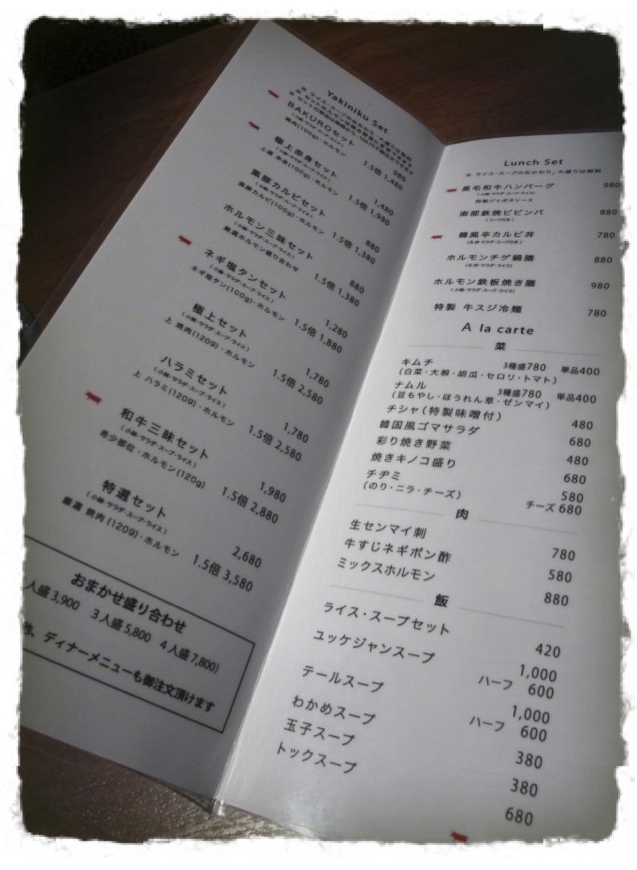 Yakiniku Set
BAKUROセット 980
(小鉢・サラダ・スープ・ライス)
焼肉(100g)・ホルモン 1.5倍 1,480
極上赤身セット 1,480
(小鉢・サラダ・スープ・ライス)
上選 赤身(100g)・ホルモン 1.5倍 1,980
黒豚カルビセット 880
(小鉢・サラダ・スープ・ライス)
黒豚カルビ(100g)・ホルモン 1.5倍 1,380
ホルモン三昧セット 880
(小鉢・サラダ・スープ・ライス)
厳選ホルモン盛り合わせ 1.5倍 1,380
ネギ塩タンセット 1,280
(小鉢・サラダ・スープ・ライス)
ネギ塩タン(100g)・ホルモン 1.5倍 1,880
極上セット 1,780
(小鉢・サラダ・スープ・ライス)
上 焼肉(120g)・ホルモン 1.5倍 2,580
ハラミセット 1,780
(小鉢・サラダ・スープ・ライス)
上 ハラミ(120g)・ホルモン 1.5倍 2,580
和牛三昧セット 1,980
(小鉢・サラダ・スープ・ライス)
希少部位・ホルモン(120g) 1.5倍 2,880
特選セット 2,680
(小鉢・サラダ・スープ・ライス)
厳選 焼肉(120g)・ホルモン 1.5倍 3,580
おまかせ盛り合わせ
人盛 3,900 3人盛 5,800 4人盛 7,800)
、ディナーメニューも御注文頂けます
Lunch Set
※ ライス・スープのおかわり、大盛りは無料
黒毛和牛ハンバーグ 980
(小鉢・サラダ・スープ・ライス)
特製ジャポネソース
南部鉄焼ビビンバ 880
(スープ付き)
韓風辛カルビ丼 780
(小鉢・サラダ・スープ付き)
ホルモンチゲ鍋膳 880
(小鉢・サラダ・ライス)
ホルモン鉄板焼き膳 980
(小鉢・サラダ・スープ・ライス)
特製 牛スジ冷麺 780
A la carte
菜
キムチ 3種盛780 単品400
(白菜・大根・胡瓜・セロリ・トマト)
ナムル 3種盛780 単品400
(豆もやし・ほうれん草・ゼンマイ)
チシャ(特製味噌付) 480
韓国風ゴマサラダ 680
彩り焼き野菜 480
焼きキノコ盛り 680
チヂミ 580
(のり・ニラ・チーズ) チーズ 680
肉
生センマイ刺 780
牛すじネギポン酢 580
ミックスホルモン 880
飯
ライス・スープセット 420
ユッケジャンスープ 1,000
ハーフ 600
テールスープ 1,000
ハーフ 600
わかめスープ 380
玉子スープ 380
トックスープ 680